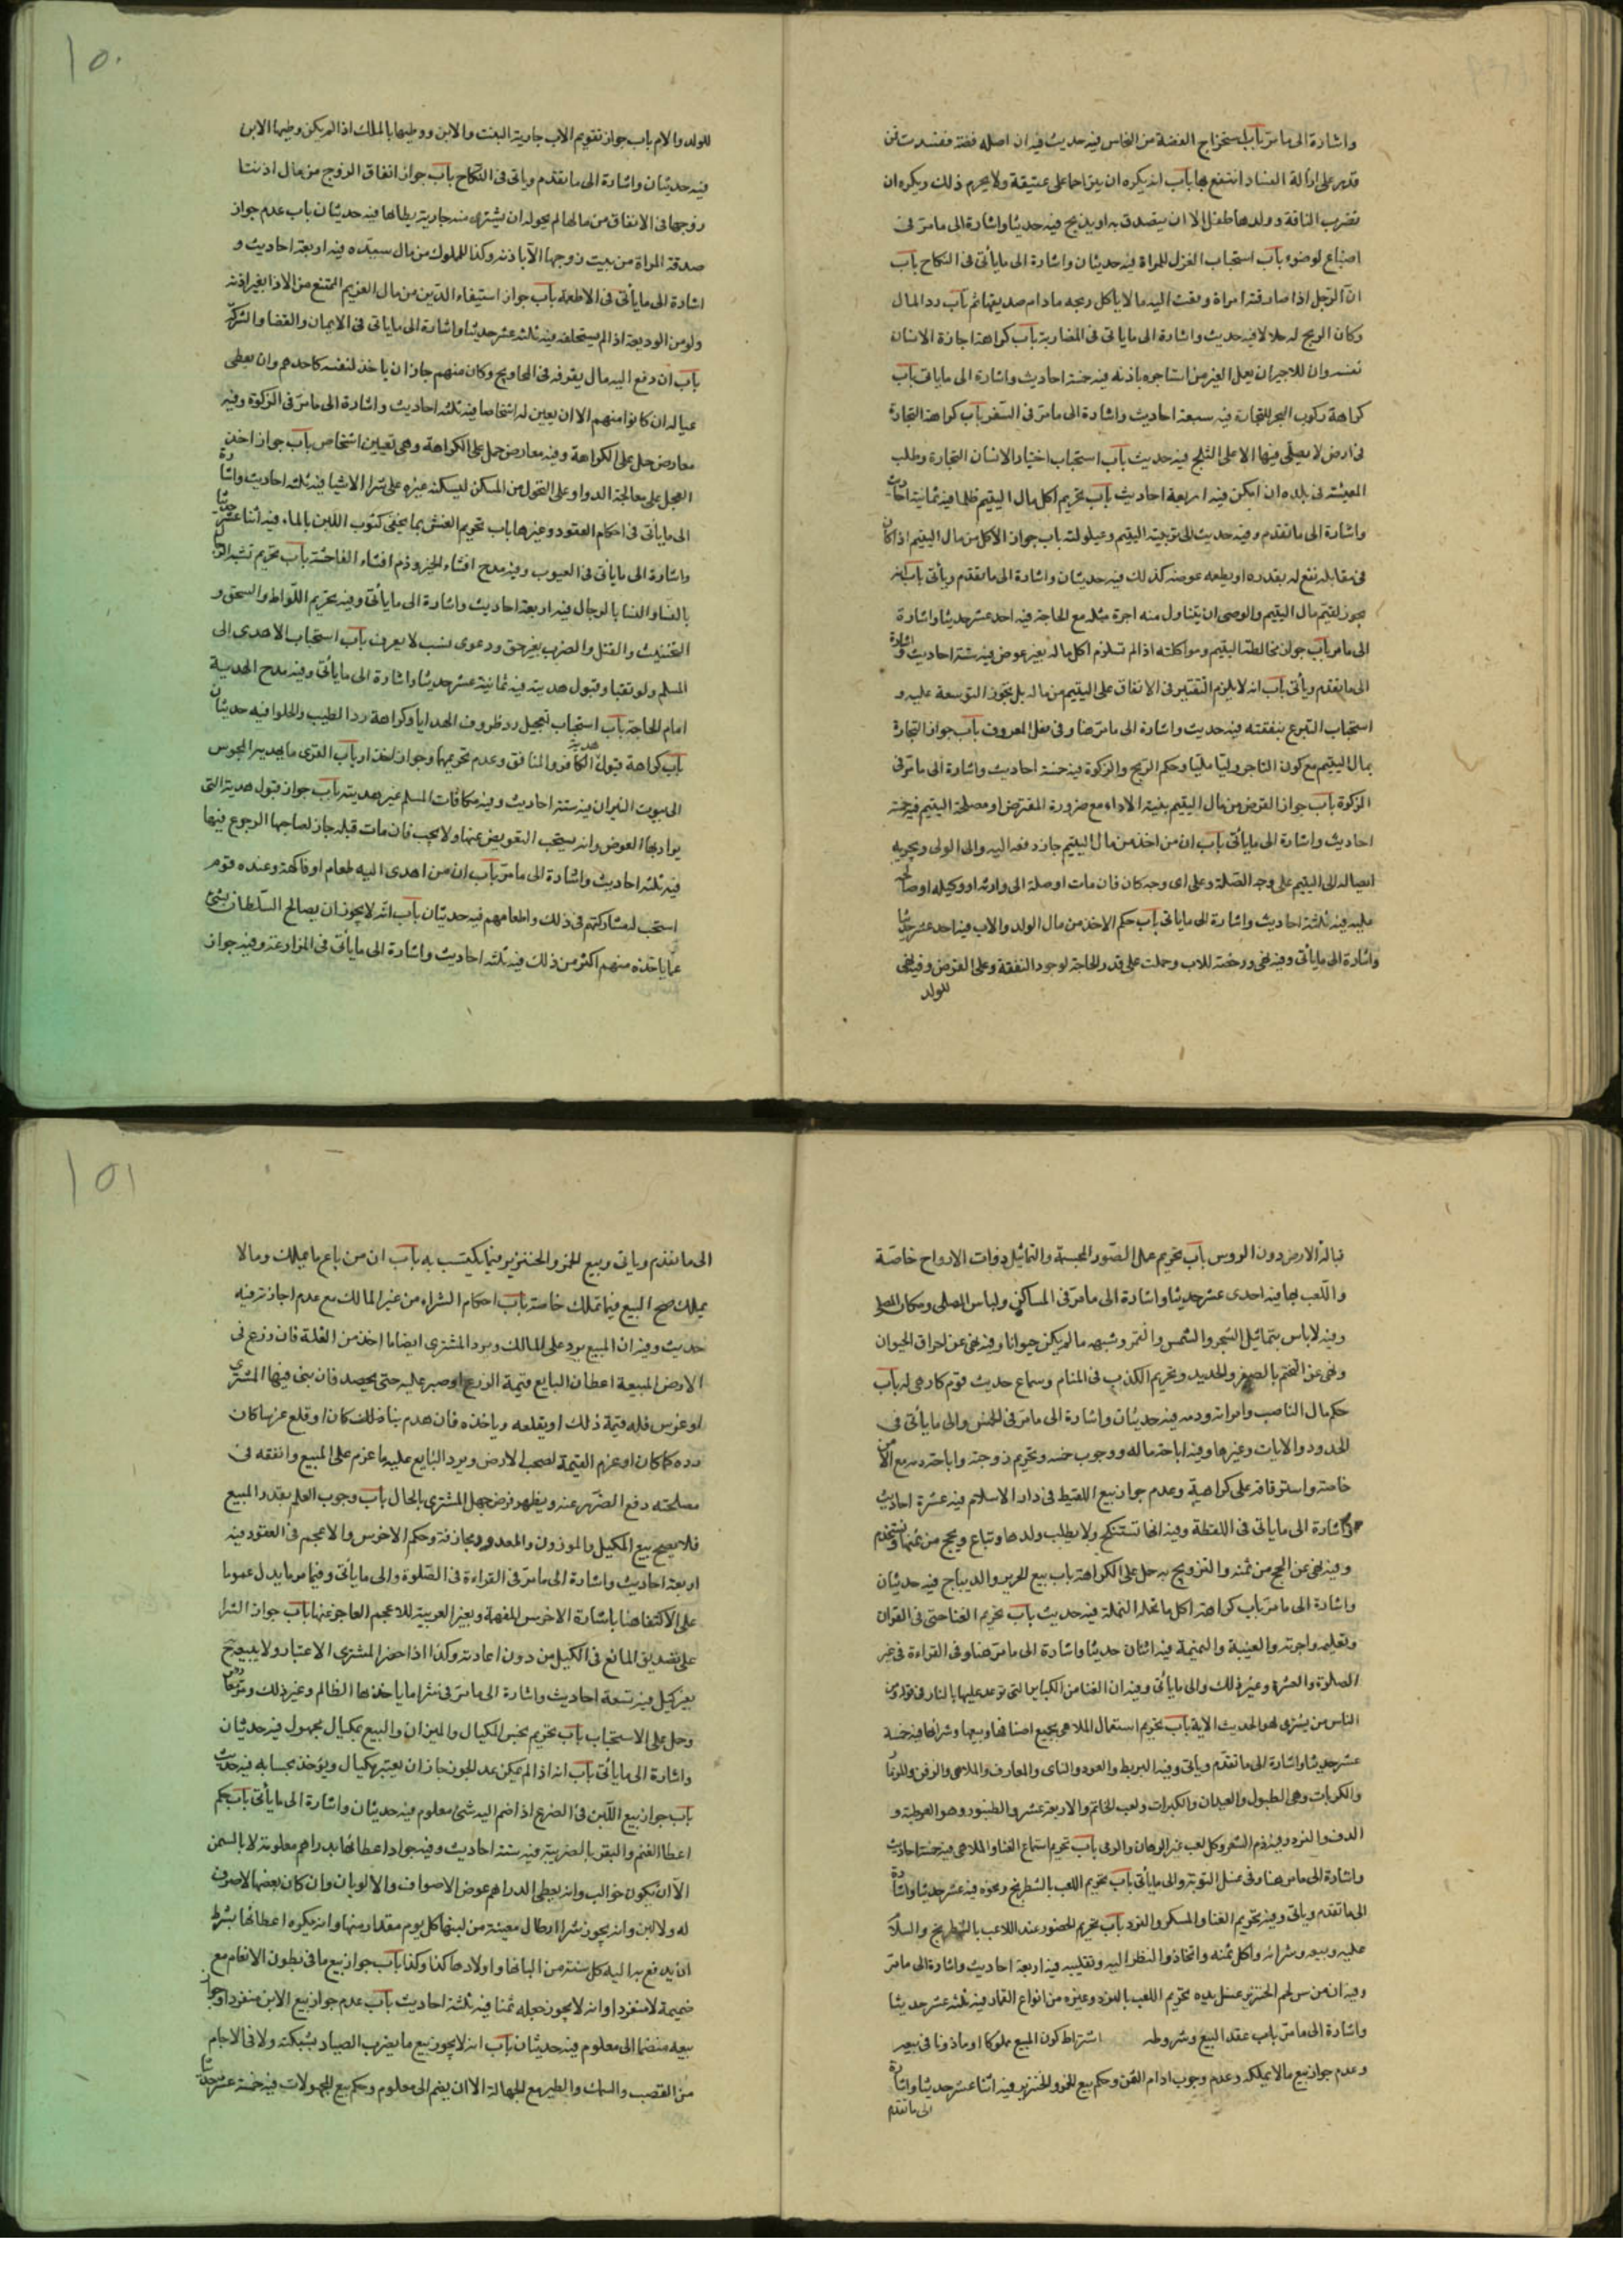 واشارة الى ما مر باب استخراج الفضة من النحاس فيه حديث فيه ان اصله فضة ففسدت فمن
قدر على ازالة الفساد انتفع بها باب انه يكره ان ينزا حمار على عتيقة ولا يحرم ذلك ويكره ان
تضرب الناقة وولدها طفل الا ان يتصدق به او يذبح فيه حديثا واشارة الى ما مر في
باب استحباب الغزل للمراة فيه حديثان واشارة الى ما يأتي في النكاح باب
ان الرجل اذا صادقته امراة ودفعت اليه مالا ياكل ربحه مادام صديقها ثم تاب رد المال
وكان الربح له حلالا فيه حديث واشارة الى ما ياتي في المضاربة باب كراهة اجارة الانسان
نفسه وان للاجير ان يعمل لغير من استاجره باذنه فيه خمسة احاديث واشارة الى ما ياتي باب
كراهة ركوب البحر للتجارة فيه سبعة احاديث واشارة الى ما مر في السفر باب كراهة التجارة
في ارض لا يصلي فيها الا على الثلج فيه حديث باب استحباب اختيار الانسان التجارة وطلب
المعيشة في بلده ان امكن فيه اربعة احاديث باب تحريم اكل مال اليتيم ظلما فيه ثمانية احاديث
واشارة الى ما تقدم وفيه حديث الى تربية اليتيم وعيلولته باب جواز الاكل من مال اليتيم اذا كان
في مقابله نفع له بقدره او يطعمه عوضه كذلك فيه حديثان واشارة الى ما تقدم وياتي باب انه
يجوز لقيم مال اليتيم والوصي ان يتناول منه اجرة مثله مع الحاجة فيه احد عشر حديثا واشارة
الى ما مر باب جواز مخالطة اليتيم ومواكلته اذا لم تستلزم اكل ماله بغير عوض فيه ستة احاديث واشارة
الى ما تقدم ويأتي باب انه لا يلزم التقتير في الانفاق على اليتيم من ماله بل يجوز التوسعة عليه و
استحباب التبرع بنفقته فيه حديث واشارة الى ما مر هنا وفي فعل المعروف باب جواز التجارة
بمال اليتيم مع كون التاجر وليا مليا وحكم الربح والزكوة فيه خمسة احاديث واشارة الى ما مر في
الزكوة باب جواز القرض من مال اليتيم بنية الاداء مع ضرورة المقترض او مصلحة اليتيم فيه خمسة
احاديث واشارة الى ما يأتي باب ان من اخذ من مال اليتيم جاز دفعه اليه والى الولي ويجزيه
ايصاله الى اليتيم على وجه الصلة وعلى اى وجه كان فان مات اوصله الى وارثه او وكيله او صالح
عليه فيه ثلثة احاديث واشارة الى ما ياتي باب حكم الاخذ من مال الولد والاب فيه احد عشر حديثا
واشارة الى ما يأتي وفيه نهى ورخصة للاب وحملت على قدر الحاجة لوجود النفقة وعلى القرض وفيه نهى
للولد
للولد والام باب جواز تقويم الاب جارية البنت والابن ووطيها بالملك اذا لم يكن وطيها الابن
فيه حديثان واشارة الى ما تقدم وياتي في النكاح باب جواز انفاق الزوج من مال اذنت
زوجها في الانفاق من مالها لم يجز له ان يشترى منه جارية يطاها فيه حديثان باب عدم جواز
صدقة المراة من بيت زوجها الا باذنه وكذا المملوك من مال سيده فيه اربعة احاديث و
اشارة الى ما يأتي في الاطعمة باب جواز استيفاء الدين من مال الغريم الممتنع من الاداء بغير اذنه
ولو من الوديعة اذا لم يستحلفه فيه ثلثة عشر حديثا واشارة الى ما ياتي في الايمان والقضا والشركة
باب ان من دفع اليه مال يفرقه في المحاويج وكان منهم جاز ان ياخذ لنفسه كاحدهم وان يعطي
عياله ان كانوا منهم الا ان يعين له اشخاصا فيه ثلثة احاديث واشارة الى ما مر في الزكوة وفيه
معارض حمل على الكراهة وفيه معارض حمل على الكراهة وهي تعيين اشخاص باب جواز اخذ
الجعل على معالجة الدواء وعلى التحول من المسكن ليسكنه غيره على شراء الاشيا فيه ثلثة احاديث واشارة
الى ما يأتي في احكام العقود وغيرها باب تحريم الغش بما يخفى كثوب اللبن بالماء فيه اثنا عشر حديثا
واشارة الى ما يأتي في العيوب وفيه مدح افشاء الخير وذم افشاء الفاحشة باب تحريم تشبه الرجال
بالنساء والنسا بالرجال فيه اربعة احاديث واشارة الى ما يأتي وفيه تحريم اللواط والسحق و
التخنيث والقتل والضرب بغير حق ودعوى نسب لا يعرف باب استحباب الاهدى الى
المسلم ولو نبقا وقبول هديته فيه ثمانية عشر حديثا واشارة الى ما يأتي وفيه مدح الهدية
امام الحاجة باب استحباب تعجيل رد ظروف الهدايا وكراهة رد الطيب والحلوا فيه حديثان
باب كراهة قبول هدية الكافر والمنافق وعدم تحريمها وجواز اخذ ارباب القرى ما يهديه المجوس
الى بيوت النيران فيه ستة احاديث وفيه مكافات المسلم غير هديته باب جواز قبول هدية التى
يراد بها العوض وانه يستحب التعويض عنها ولا يجب فان مات قبله جاز لصاحبها الرجوع فيها
فيه ثلثة احاديث واشارة الى ما مر باب ان من اهدى اليه طعام او فاكهة وعنده قوم
استحب له مشاركتهم في ذلك واطعامهم فيه حديثان باب انه لا يجوز ان يصالح السلطان بشئ
عما ياخذه منهم اكثر من ذلك فيه ثلثة احاديث واشارة الى ما يأتي في المزارعة وفيه جواز
قبالة الارض دون الروس باب تحريم عمل الصور المجسمة والتماثيل ذوات الارواح خاصة
واللعب بها فيه احدى عشر حديثا واشارة الى ما مر في المساكن ولباس المصلى ومكان المصلى
وفيه لاباس بتماثيل الشجر والشمس والقمر وشبهه ما لم يكن حيوانا وفيه نهى عن احراق الحيوان
ونهى عن التختم بالصفر والحديد وتحريم الكذب في المنام وسماع حديث قوم كارهين له باب
حكم مال الناصب وامراته ودمه فيه حديثان واشارة الى ما مر في الخمس والى ما يأتي في
الحدود والايات وغيرها وفيه اباحة ماله ووجوب خمسه وتحريم زوجته واباحة دمه مع الامن
خاصة واستوقافه على كراهية وعدم جواز بيع اللقيط في دار الاسلام فيه عشرة احاديث
واشارة الى ما ياتي في اللقطة وفيه انها تستنكح ولا يطلب ولدها وتباع ويحج من ثمنها وتستخدم
وفيه نهى عن الحج من ثمنه والتزويج به حمل على الكراهة باب بيع الحرير والديباج فيه حديثان
واشارة الى ما مر باب كراهة اكل ما تحمله النملة فيه حديث باب تحريم الغنا حتى في القران
وتعليمه واجرته والغيبة والنميمة فيه اثنان حديثا واشارة الى ما مر هنا وفي القراءة في غير
الصلوة والعشرة وغير ذلك والى ما يأتي وفيه ان الغنا من الكباير التي توعد عليها بالنار في قوله ومن
الناس من يشترى لهو الحديث الاية باب تحريم استعمال الملاهي بجميع اصنافها وبيعها وشرائها فيه خمسة
عشر حديثا واشارة الى ما تقدم ويأتي وفيه البربط والعود والناى والمعازف والملاهى والزفن والمزمار
والكوبات وهي الطبول والعيدان والكبرات ولعب الخاتم والاربعة عشر والطنبور وهو العرطبة و
الدف والنرد وفيه ذم الشعر وكل لعب غير الرهان والرمى باب تحريم استماع الغنا والملاهى فيه خمسة احاديث
واشارة الى ما مر هنا وفي غسل التوبة والى ما يأتي باب تحريم اللعب بالشطرنج ونحوه فيه عشر حديثا واشارة
الى ما تقدم وياتي وفيه تحريم الغنا والمسكر والنرد باب تحريم الحضور عند اللاعب بالشطرنج والسلام
عليه وبيعه وشرائه واكل ثمنه واتخاذه والنظر اليه وتقليبه فيه اربعة احاديث واشارة الى ما مر
وفيه ان من مس لحم الخنزير غسل يده تحريم اللعب بالنرد وغيره من انواع القمار فيه ثلثة عشر حديثا
واشارة الى ما مر باب عقد البيع وشروطه اشتراط كون المبيع مملوكا او ماذونا في بيعه
وعدم جواز بيع مالا يملكه وعدم وجوب ادام الثمن وحكم بيع الخمر والخنزير فيه اثنا عشر حديثا واشارة
الى ما تقدم
الى ما تقدم وياتي وبيع الخمر والخنزير فيما يكتسب به باب ان من باع ما يملك وما لا
يملك صح البيع فيما تملك خاصة باب احكام الشراء من غير المالك مع عدم اجازته فيه
حديث وفيه ان المبيع يرد على المالك ويرد المشترى ايضا ما اخذ من الغلة فان زرع في
الارض المبيعة اعطاه البايع قيمة الزرع او صبر عليه حتى يحصد فان بنى فيها المشترى
او غرس فله قيمة ذلك او يقلعه وياخذه فان هدم بنا ضالف كان او قلع غرسها كان
رده كما كان او غرم القيمة لصحب الارض ويرد البايع عليه ما غرم على المبيع وانفقه في
مصلحته ودفع الضرر عنه ويظهر فرض جهل المشترى بالحال باب وجوب العلم بقدر المبيع
فلا يصح بيع المكيل والموزون والمعدود ومجازفة وحكم الاخرس والاعجم في العقود فيه
اربعة احاديث واشارة الى ما مر في القراءة في الصلوة والى ما يأتي وفيما مر ما يدل عموما
على الاكتفا هنا باشارة الاخرس المفهمة وبغير العربية للاعجم العاجز عنها باب جواز الشرا
على تصديق البايع في الكيل من دون اعادته وكذا اذا حضر المشترى الاعتبار ولا يبيعه
بغير كيل فيه تسعة احاديث واشارة الى ما مر في شرا ما ياخذها الظالم وغير ذلك
وحمل على الاستحباب باب تحريم بخس المكيال والميزان والبيع بمكيال مجهول فيه حديثان
واشارة الى ما يأتي باب انه اذا لم يمكن عد الجوز جاز ان يعتبر بمكيال ويؤخذ بحسابه فيه حديث
باب جواز بيع اللبن في الضرع اذا ضم اليه شئ معلوم فيه حديثان واشارة الى ما يأتي باب حكم
اعطا الغنم والبقر بالضريبة فيه ستة احاديث وفيه جواز اعطائها بدراهم معلومة لا بالسمن
الا ان يكون حوالب وانه يعطى الدراهم عوض الاصواف والالوبان وان كان بعضها لا صوف
له ولا لبن وانه يجوز شرا ارطال معينة من لبنها كل يوم مقدار منها وانه يكره اعطائها بشرط
ان يدفع يدا اليه كل سنة من البانها واولادها كذا وكذا باب جواز بيع ما في بطون الانعام مع
ضميمة لا منفردا وانه لا يجوز جعله ثمنا فيه ثلثة احاديث باب عدم جواز بيع الابن منفردا وجواز
بيعه منضما الى معلوم فيه حديثان باب انه لا يجوز بيع ما يضرب الصياد بشبكته ولا في الاجام
من القصب والسمك والطير مع الجهالة الا ان يضم الى معلوم وحكم بيع المجهولات فيه خمسة عشر حديثا
١٥٠
١٥١